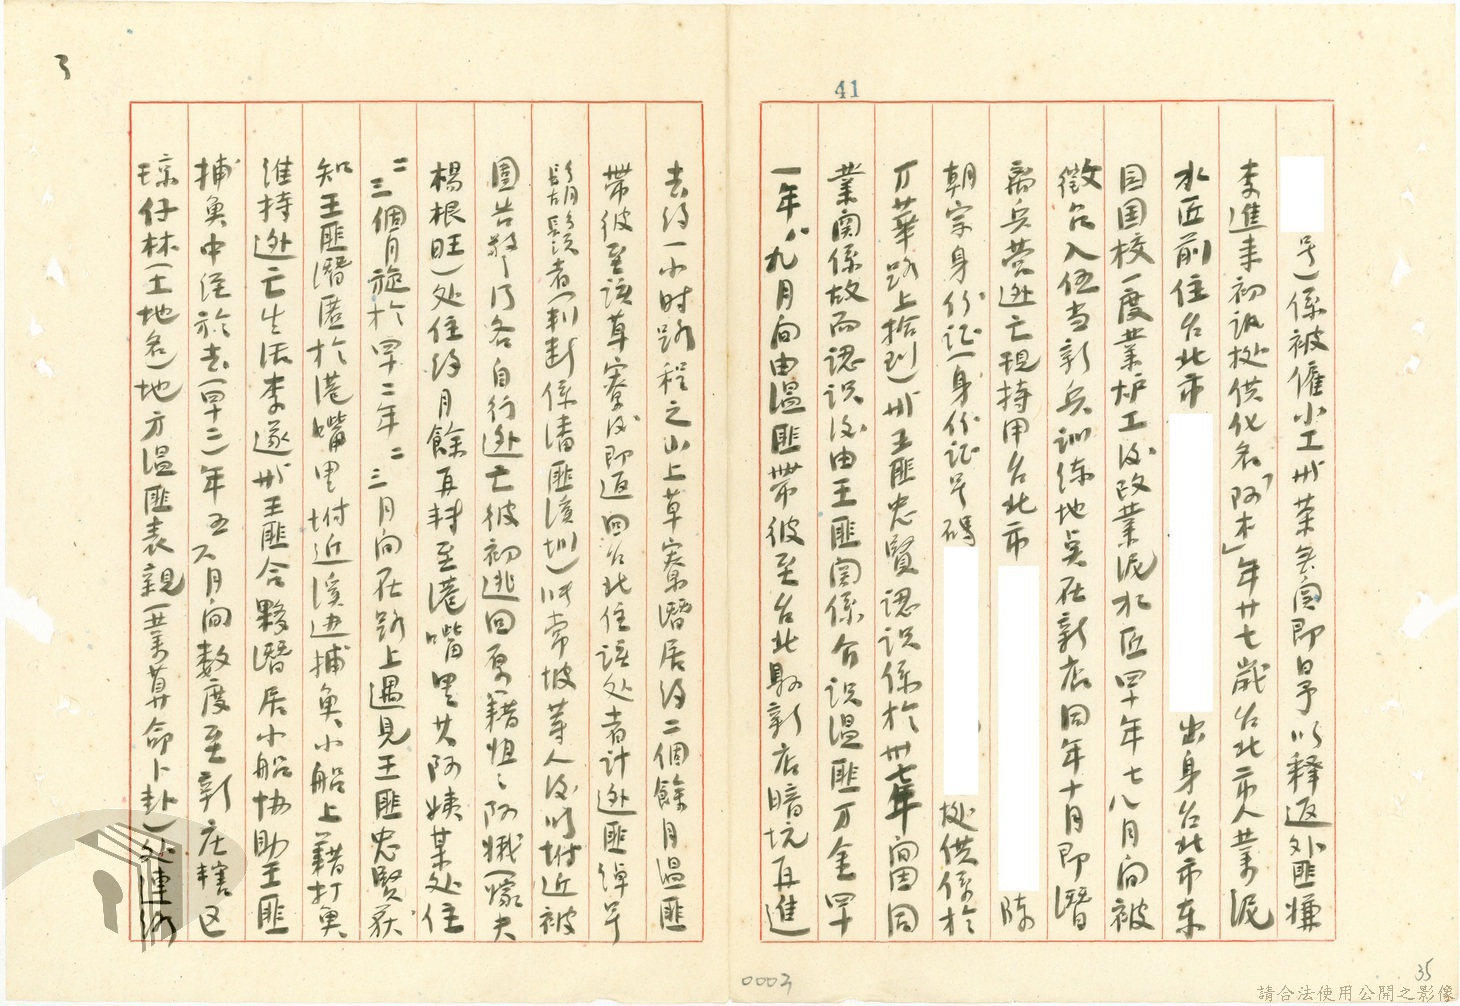 41
号)係被僱小工卅業無負即日予以釋返外匪嫌
李進来初訊挺供化名「阿木」年廿七歲台北市人業泥
水匠前住台北市 出身台北市東
園国校一度業炉工後改業泥水匠四十年七八月向被
徵召入伍当新兵訓練地点在新店同年十月即潛
离兵营逃亡現持用台北市 陈
朝宗身份证(身份证号碼 挺供係於
万華路上拾到)卅王匪忠賢認识係於卅七年間因同
業関係故而認识後由王匪関係介识温匪万金四十
一年八九月向由温匪帶彼至台北縣新店暗坑再進
去约一小时路程之山上草寮潛居约二個餘月温匪
帶彼至該草寮後即返回台北住該处者計逃匪綽号
鬍鬚者(判断係潘匪溪圳)時常坡等人後以附近被
圍告警乃各自行逃亡彼初逃回原籍姐之阿娥(嫁夫
楊根旺)处住约月餘再轉至港嘴里其阿姨某处住
二三個月旋於四十二年二三月向在路上遇見王匪忠賢获
知王匪潛匿於港嘴里附近溪边捕魚小船上藉打魚
維持逃亡生活李遂卅王匪合夥潛居小船協助王匪
捕魚中经於去(四十二)年五六月间数度至新庄轄区
琼仔林(土地名)地方温匪表親(業算命卜卦)处連絡
0003
35
請合法使用公開之影像